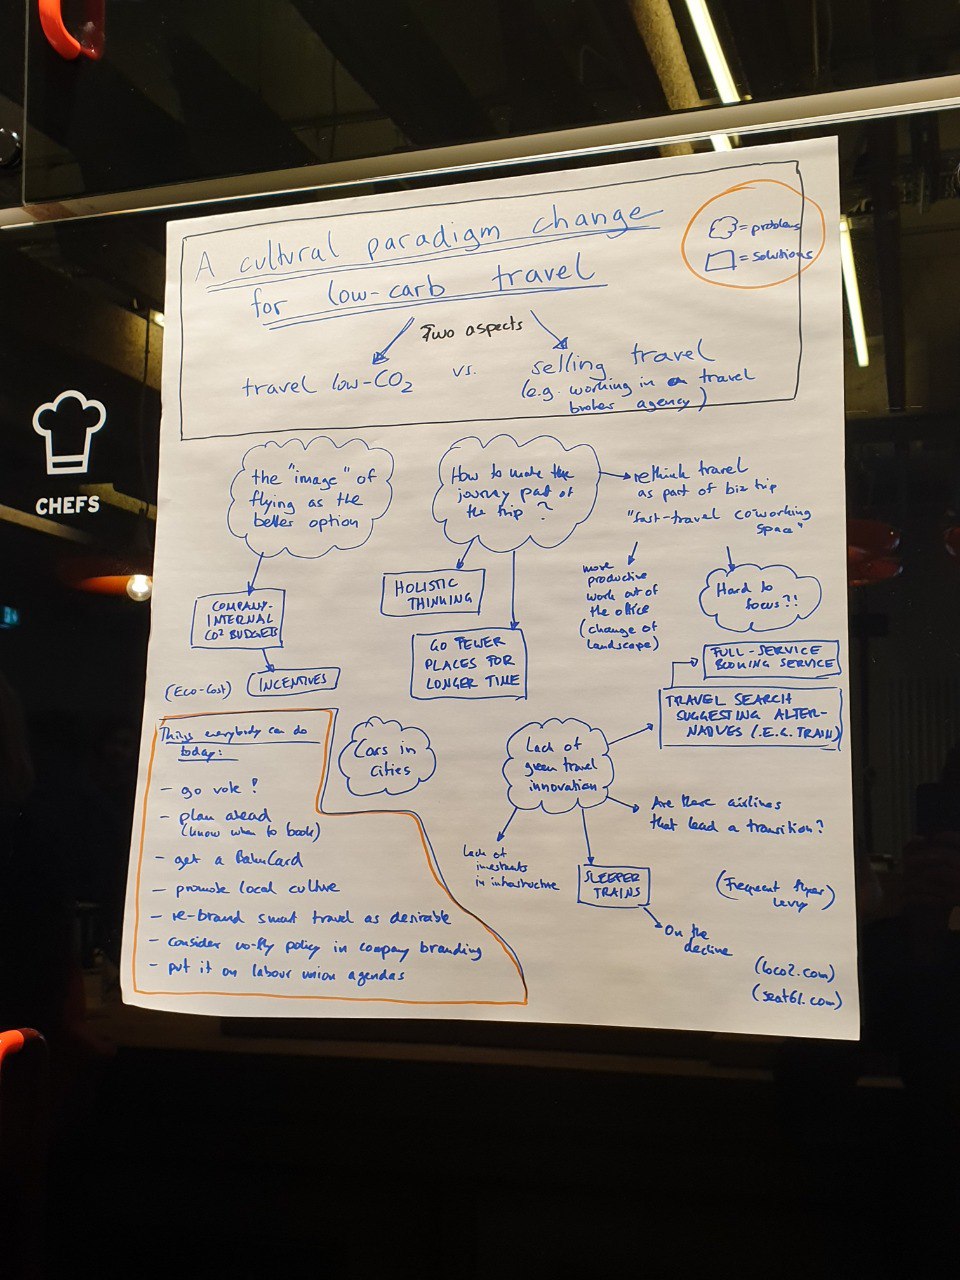 A cultural paradigm change
for low-carb travel
= problems
= solutions
Two aspects
travel low-CO2
vs.
selling travel
(e.g. working in a travel
broker agency)
CHEFS
the "image" of
flying as the
better option
COMPANY-
INTERNAL
CO² BUDGETS
(Eco-Cost)
INCENTIVES
How to make the
journey part of
the trip?
HOLISTIC
THINKING
GO FEWER
PLACES FOR
LONGER TIME
rethink travel
as part of biz trip
"fast-travel coworking
space"
more
productive
work out of
the office
(change of
landscape)
Hard to
focus?!
FULL-SERVICE
BOOKING SERVICE
TRAVEL SEARCH
SUGGESTING ALTER-
NATIVES (I.E.G. TRAIN)
Things everybody can do
today:
- go vote!
- plan ahead
(know when to book)
- get a BahnCard
- promote local culture
- re-brand smart travel as desirable
- consider no-fly policy in company branding
- put it on labour union agendas
Cars in
cities
Lack of
green travel
innovation
Are there airlines
that lead a transition?
Lack of
investments
in infrastructure
SLEEPER
TRAINS
On the
decline
(Frequent flyer
levy)
(loco2.com)
(seat61.com)